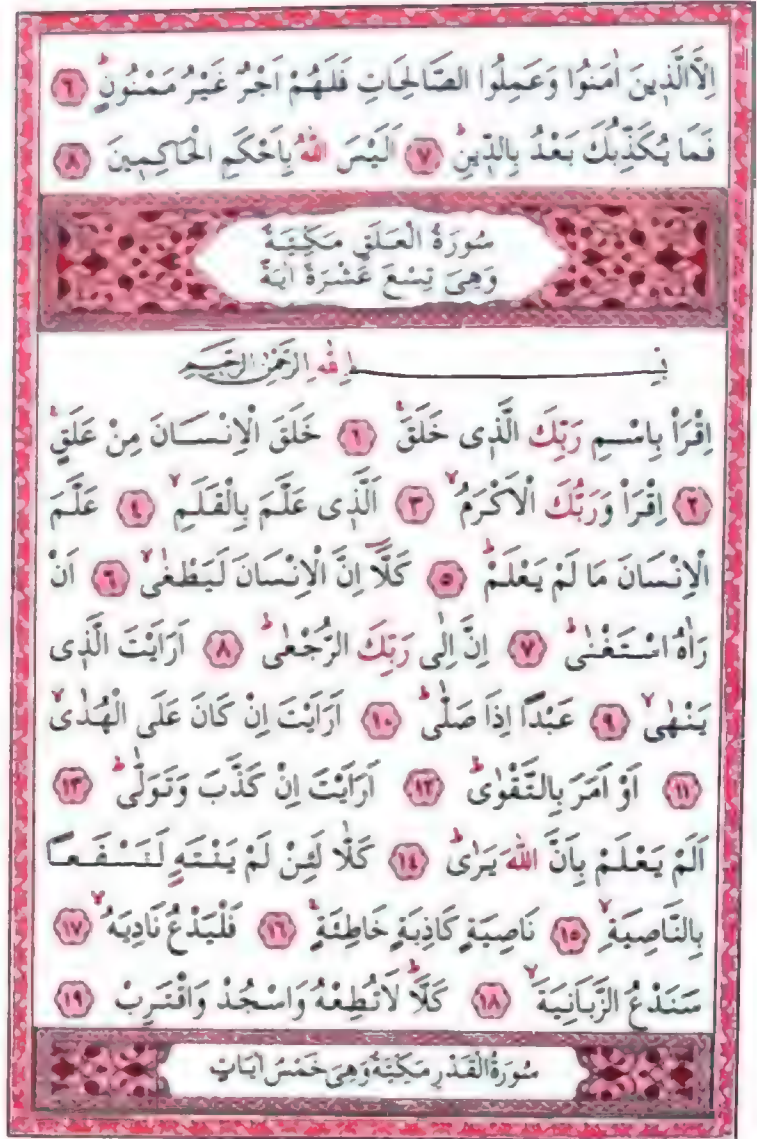 اِلَّا الَّذ۪ينَ اٰمَنُوا وَعَمِلُوا الصَّالِحَاتِ فَلَهُمْ اَجْرٌ غَيْرُ مَمْنُونٍۜ ٦
فَمَا يُكَذِّبُكَ بَعْدُ بِالدّ۪ينِۜ ٧ اَلَيْسَ اللّٰهُ بِاَحْكَمِ الْحَاكِم۪ينَ ٨
سُورَةُ الْعَلَقِ مَكِّيَّةٌ
وَهِيَ تِسْعَ عَشْرَةَ اٰيَةً
بِسْمِ اللّٰهِ الرَّحْمٰنِ الرَّح۪يمِ
اِقْرَأْ بِاسْمِ رَبِّكَ الَّذ۪ي خَلَقَۚ ١ خَلَقَ الْاِنْسَانَ مِنْ عَلَقٍۚ
٢ اِقْرَأْ وَرَبُّكَ الْاَكْرَمُۙ ٣ اَلَّذ۪ي عَلَّمَ بِالْقَلَمِۙ ٤ عَلَّمَ
الْاِنْسَانَ مَا لَمْ يَعْلَمْۜ ٥ كَلَّٓا اِنَّ الْاِنْسَانَ لَيَطْغٰىۙ ٦ اَنْ
رَاٰهُ اسْتَغْنٰىۜ ٧ اِنَّ اِلٰى رَبِّكَ الرُّجْعٰىۜ ٨ اَرَاَيْتَ الَّذ۪ي
يَنْهٰىۙ ٩ عَبْدًا اِذَا صَلّٰىۜ ١٠ اَرَاَيْتَ اِنْ كَانَ عَلَى الْهُدٰىۙ
١١ اَوْ اَمَرَ بِالتَّقْوٰىۜ ١٢ اَرَاَيْتَ اِنْ كَذَّبَ وَتَوَلّٰىۜ ١٣
اَلَمْ يَعْلَمْ بِاَنَّ اللّٰهَ يَرٰىۜ ١٤ كَلَّا لَئِنْ لَمْ يَنْتَهِ لَنَسْفَعًا
بِالنَّاصِيَةِۙ ١٥ نَاصِيَةٍ كَاذِبَةٍ خَاطِئَةٍۚ ١٦ فَلْيَدْعُ نَادِيَهُۙ ١٧
سَنَدْعُ الزَّبَانِيَةَۙ ١٨ كَلَّاۜ لَا تُطِعْهُ وَاسْجُدْ وَاقْتَرِبْ ١٩
سُورَةُ الْقَدْرِ مَكِّيَّةٌ وَهِيَ خَمْسُ اٰيَاتٍ